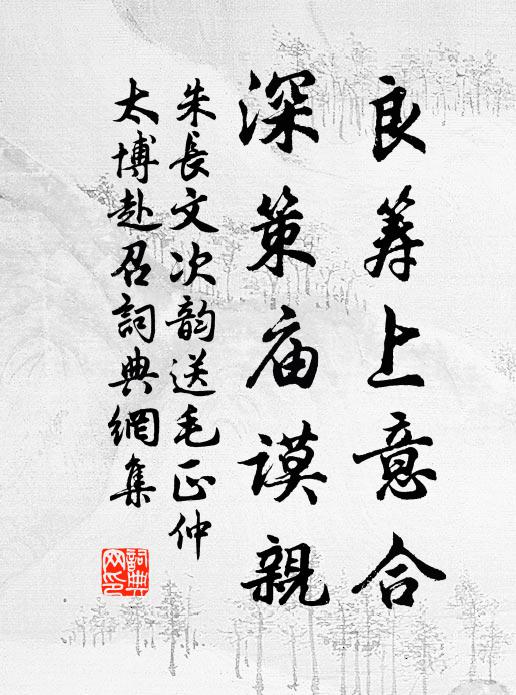 良筹上意合
深策庙谟親
朱長文次韵送毛正仲
太博赴召詞典網集
詞典
网印